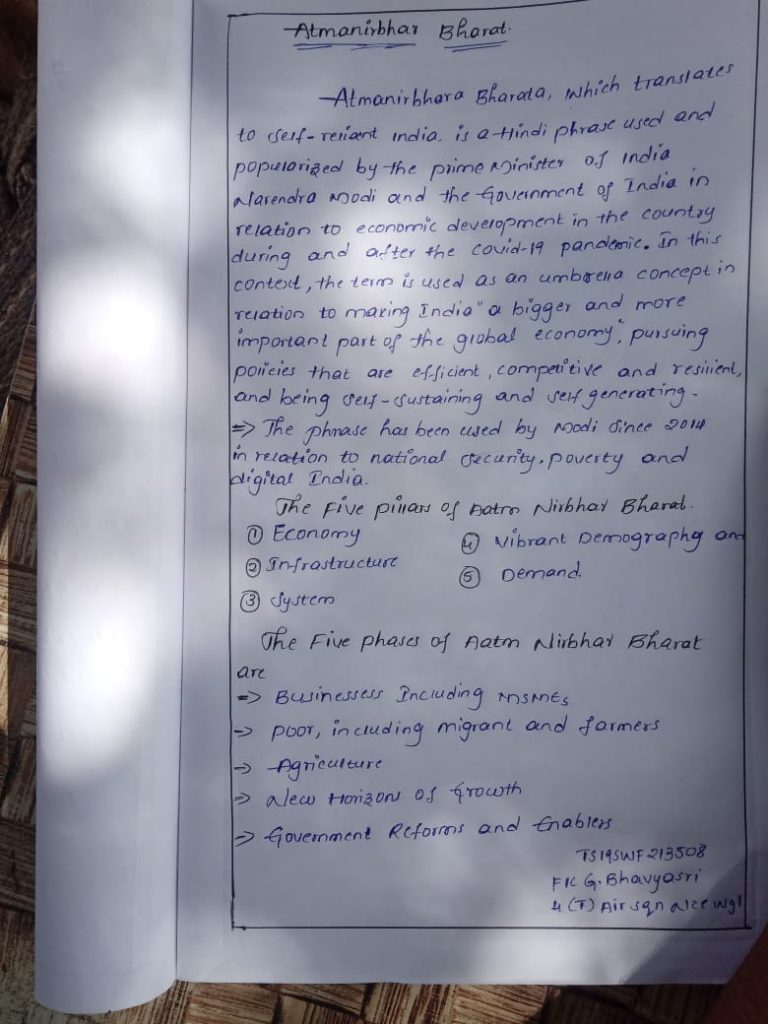 Atmanirbhar Bharat.
Atmanirbhara Bharata, which translates
to self-reliant india, is a Hindi phrase used and
popularized by the prime Minister of India
Narendra Modi and the Government of India in
relation to economic development in the country
during and after the covid-19 pandemic. In this
context, the term is used as an umbrella concept in
relation to making India "a bigger and more
important part of the global economy", pursuing
policies that are efficient, competitive and resilient,
and being self-sustaining and self generating.
=> The phrase has been used by Modi since 2014
in relation to national security, poverty and
digital India.
The Five pillars of Aatm Nirbhar Bharat.
① Economy
② Infrastructure
③ System
④ Vibrant Demography and
⑤ Demand.
The Five phases of Aatm Nirbhar Bharat
are
=> Businessess Including MSMEs
-> poor, including migrant and farmers
-> Agriculture
-> New Horizons of Growth
-> Government Reforms and Enablers
TS19SWF213508
F/C G. Bhavyasri
4 (T) Air sqn NCC Wgl